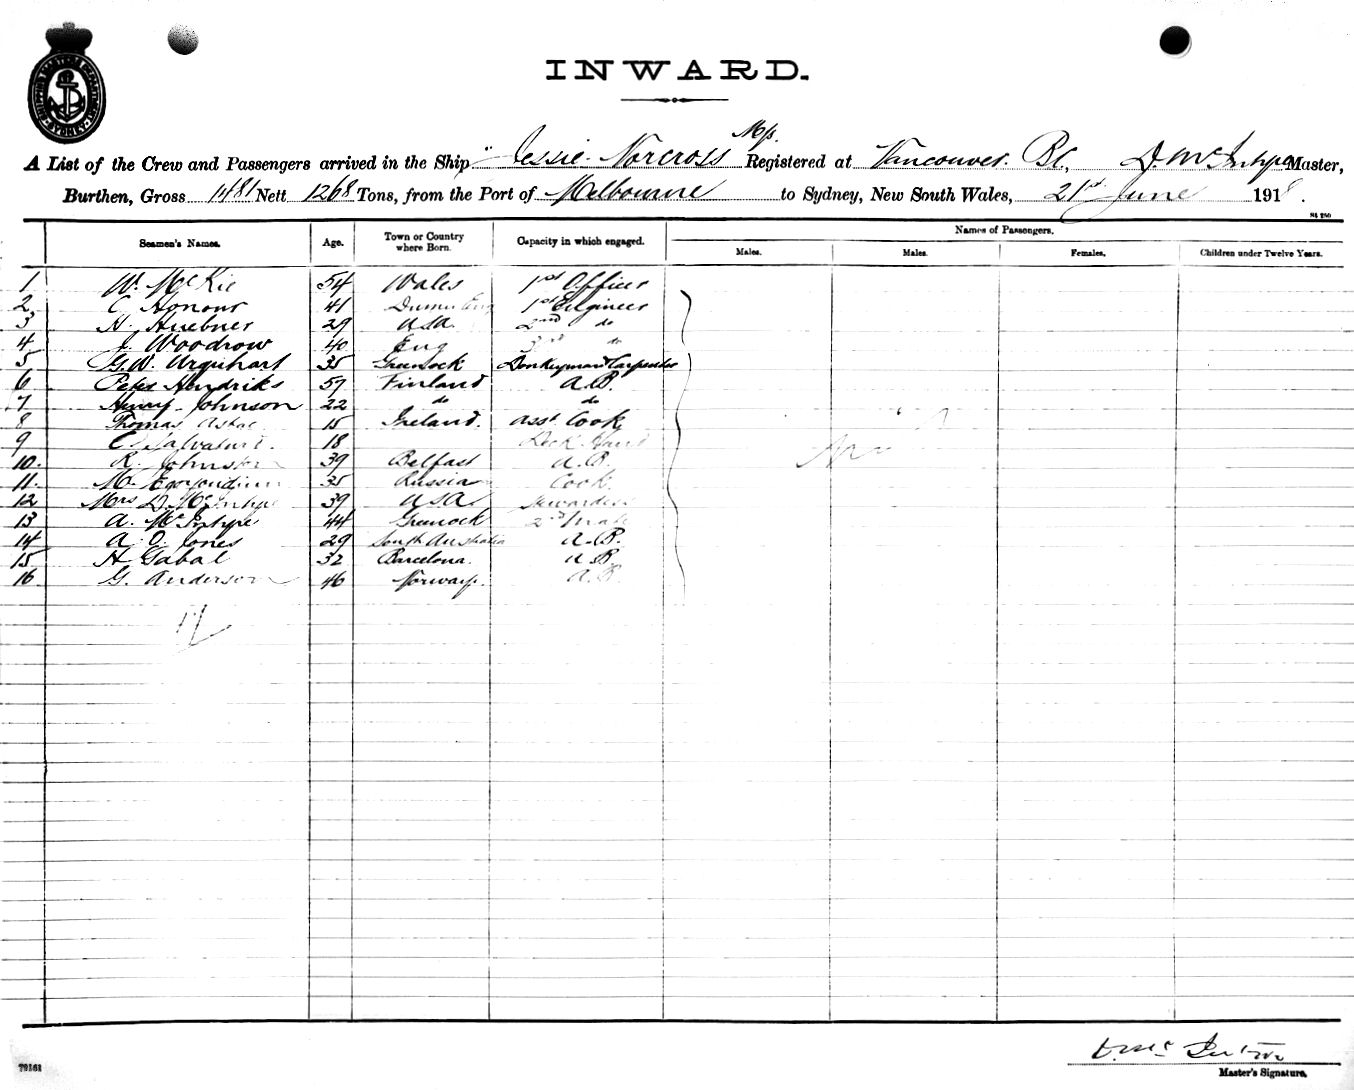 SHIPPING MASTER'S DEPARTMENT SYDNEY
INWARD.
A List of the Crew and Passengers arrived in the Ship "Jessie Norcross M/s. Registered at Vancouver. B.C., D. McIntyre Master,
Burthen, Gross 1481 Nett 1268 Tons, from the Port of Melbourne to Sydney, New South Wales, 21st June 1918.
Seamen's Names. Age. Town or Country where Born. Capacity in which engaged. Names of Passengers.
Males. Males. Females. Children under Twelve Years.
1 W. McKie 54 Wales 1st Officer
2 C Honour 41 1st Engineer
3 H. Huebner 29 USA. 2nd do
4 J. Woodrow 40 Eng 3rd do
5 G.W. Urquhart 35 Greenock Donkeyman & Carpenter
6 Peter Hendriks 57 Finland A.B.
7 Henry Johnson 22 do do
8 Thomas 15 Ireland. asst Cook
9 C. Salvatore. 18 Deck Hand
10. R. Johnston 39 Belfast A.B.
11. M. 35 Russia Cook
12 Mrs D. McIntyre 39 USA Stewardess
13 A. McIntyre 44 Greenock 2nd Mate
14 A. O. Jones 29 South Australia A.B.
15 H Gabal 32 Barcelona. A.B.
16 G. Anderson 46 Norway. A.B.
17
D. McIntyre
Master's Signature.
79161